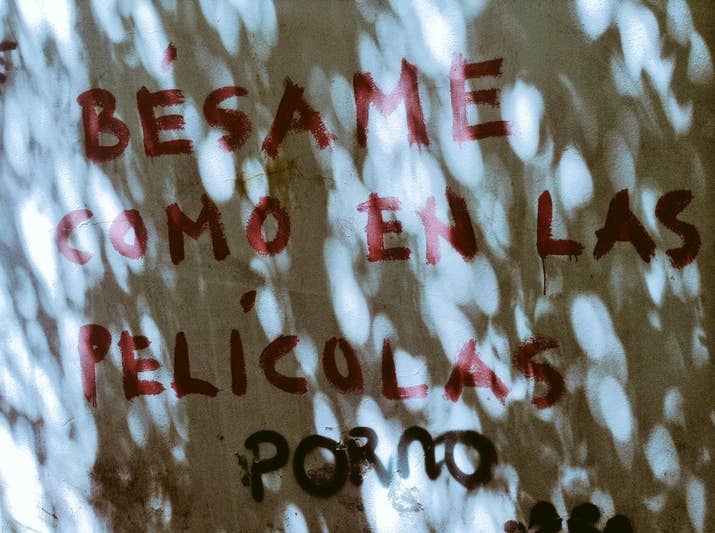 BÉSAME
COMO EN LAS
PELÍCOLAS
PORNO